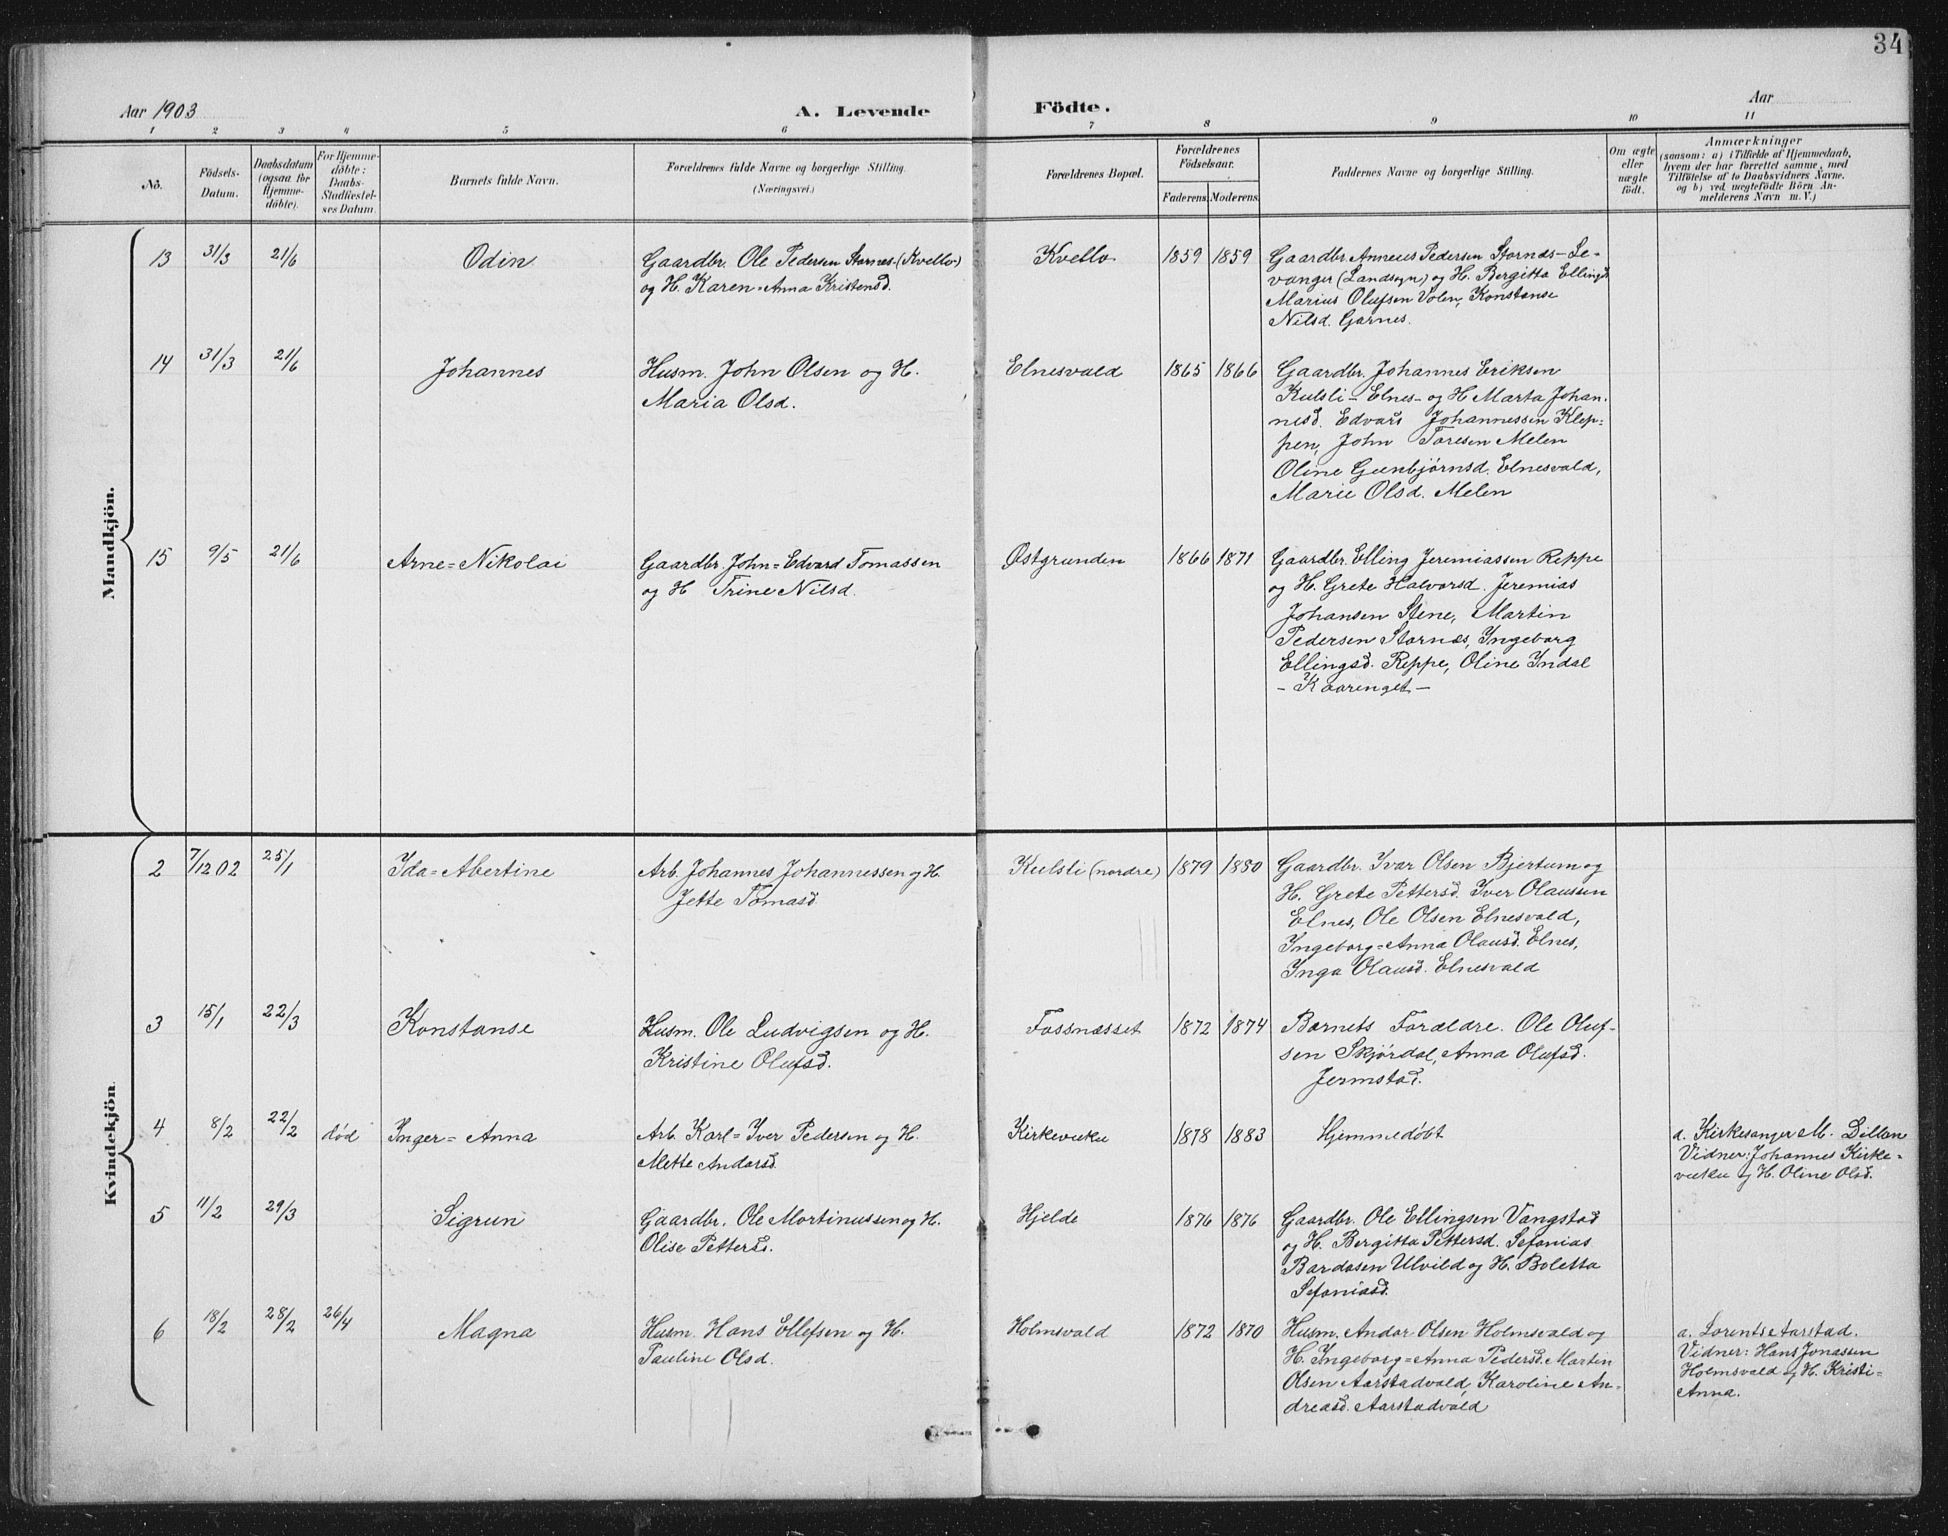 34
Aar 1903
A. Levende Födte.
Aar
1 2 3 4 5 6 7 8 9 10 11
No.
Födsels-
Datum.
Daabsdatum
(ogsaa for
Hjemme-
döbte).
For Hjemme-
döbte:
Daabs-
Stadfæstel-
ses Datum.
Barnets fulde Navn.
Forældrenes fulde Navne og borgerlige Stilling.
(Næringsvei.)
Forældrenes Bopæl.
Forældrenes
Födselsaar.
Faderens. Moderens.
Faddernes Navne og borgerlige Stilling.
Om ægte
eller
uægte
født.
Anmærkninger
(saasom: a) i Tilfælde af Hjemmedaab,
hvem der har forrettet samme, med
Tilföielse af to Daabsvidners Navne.
og b) ved uægtefödte Börn An-
melderens Navn m. V.)
Mandkjön.
13 31/3 21/6 Odin
Gaardbr. Ole Pedersen Stornes (Kvello)
og H. Karen=Anna Kristensd.
Kvello 1859 1859
Gaardbr. Anneus Pedersen Stornæs-Le-
vanger (Landsogn) og H. Bergitta Ellingsd
Marius Olufsen Volen, Konstanse
Nilsd. Garnes.
14 31/3 21/6 Johannes
Husm. John Olsen og H.
Maria Olsd.
Elnesvald 1865 1866
Gaardbr. Johannes Eriksen
Kulsli - Elnes - og H. Marta Johan.
nesd. Edvard Johannessen Klep=
pen, John Toresen Melen
Oline Gunbjørnsd. Elnesvald,
Marie Olsd. Melen
15 9/5 21/6 Arne=Nikolai
Gaardbr. John=Edvard Tomassen
og H Trine Nilsd.
Østgrunden 1866 1871
Gaardbr. Elling Jeremiassen Reppe
og H. Grete Halvorsd. Jeremias
Johansen Stene, Martin
Pedersen Stornæs, Ingeborg
Ellingsd. Reppe, Oline Indal
- Kaarenget -
Kvindekjön.
2 7/12 02 25/1 Ida=Abertine
Arb. Johannes Johannessen og H.
Jette Tomasd
Kulsli (nordre) 1879 1880
Gaardbr. Ivar Olsen Bjertum og
H. Grete Pettersd. Iver Olaussen
Elnes, Ole Olsen Elnesvald,
Ingeborg=Anna Olausd. Elnes,
Inga Olausd. Elnesvald
3 15/1 22/3 Konstanse
Husm. Ole Ludvigsen og H.
Kristine Olufsd.
Fossnæsset 1872 1874
Barnets Forældre. Ole Oluf-
sen Skjørdal, Anna Olufsd.
Jermstad.
4 8/2 22/2 død Inger=Anna
Arb. Karl=Iver Pedersen og H.
Mette Andorsd.
Kirkevuku 1878 1883
Hjemmedøbt
a. Kirkesanger M. Dillan
Vidner: Johannes Kirke=
vuku og H. Oline Olsd.
5 11/2 29/3 Sigrun
Gaardbr. Ole Mortinussen og H.
Olise Pettersd.
Hjelde 1876 1876
Gaardbr. Ole Ellingsen Vangstad
og H. Bergitta Pettersd. Sefanias
Bardosen Ulvild og H. Boletta
Sefaniasd.
6 18/2 28/2 26/4 Magna
Husm. Hans Ellefsen og H.
Pauline Olsd.
Holmsvald 1872 1870
Husm. Andor Olsen Holmsvald og
H. Ingeborg=Anna Pedersd. Martin
Olsen Aarstadvald, Karoline An-
dreasd. Aarstadvald
a. Lorents Aarstad.
Vidner: Hans Jonassen
Holmsvald og H. Kristi=
Anna.